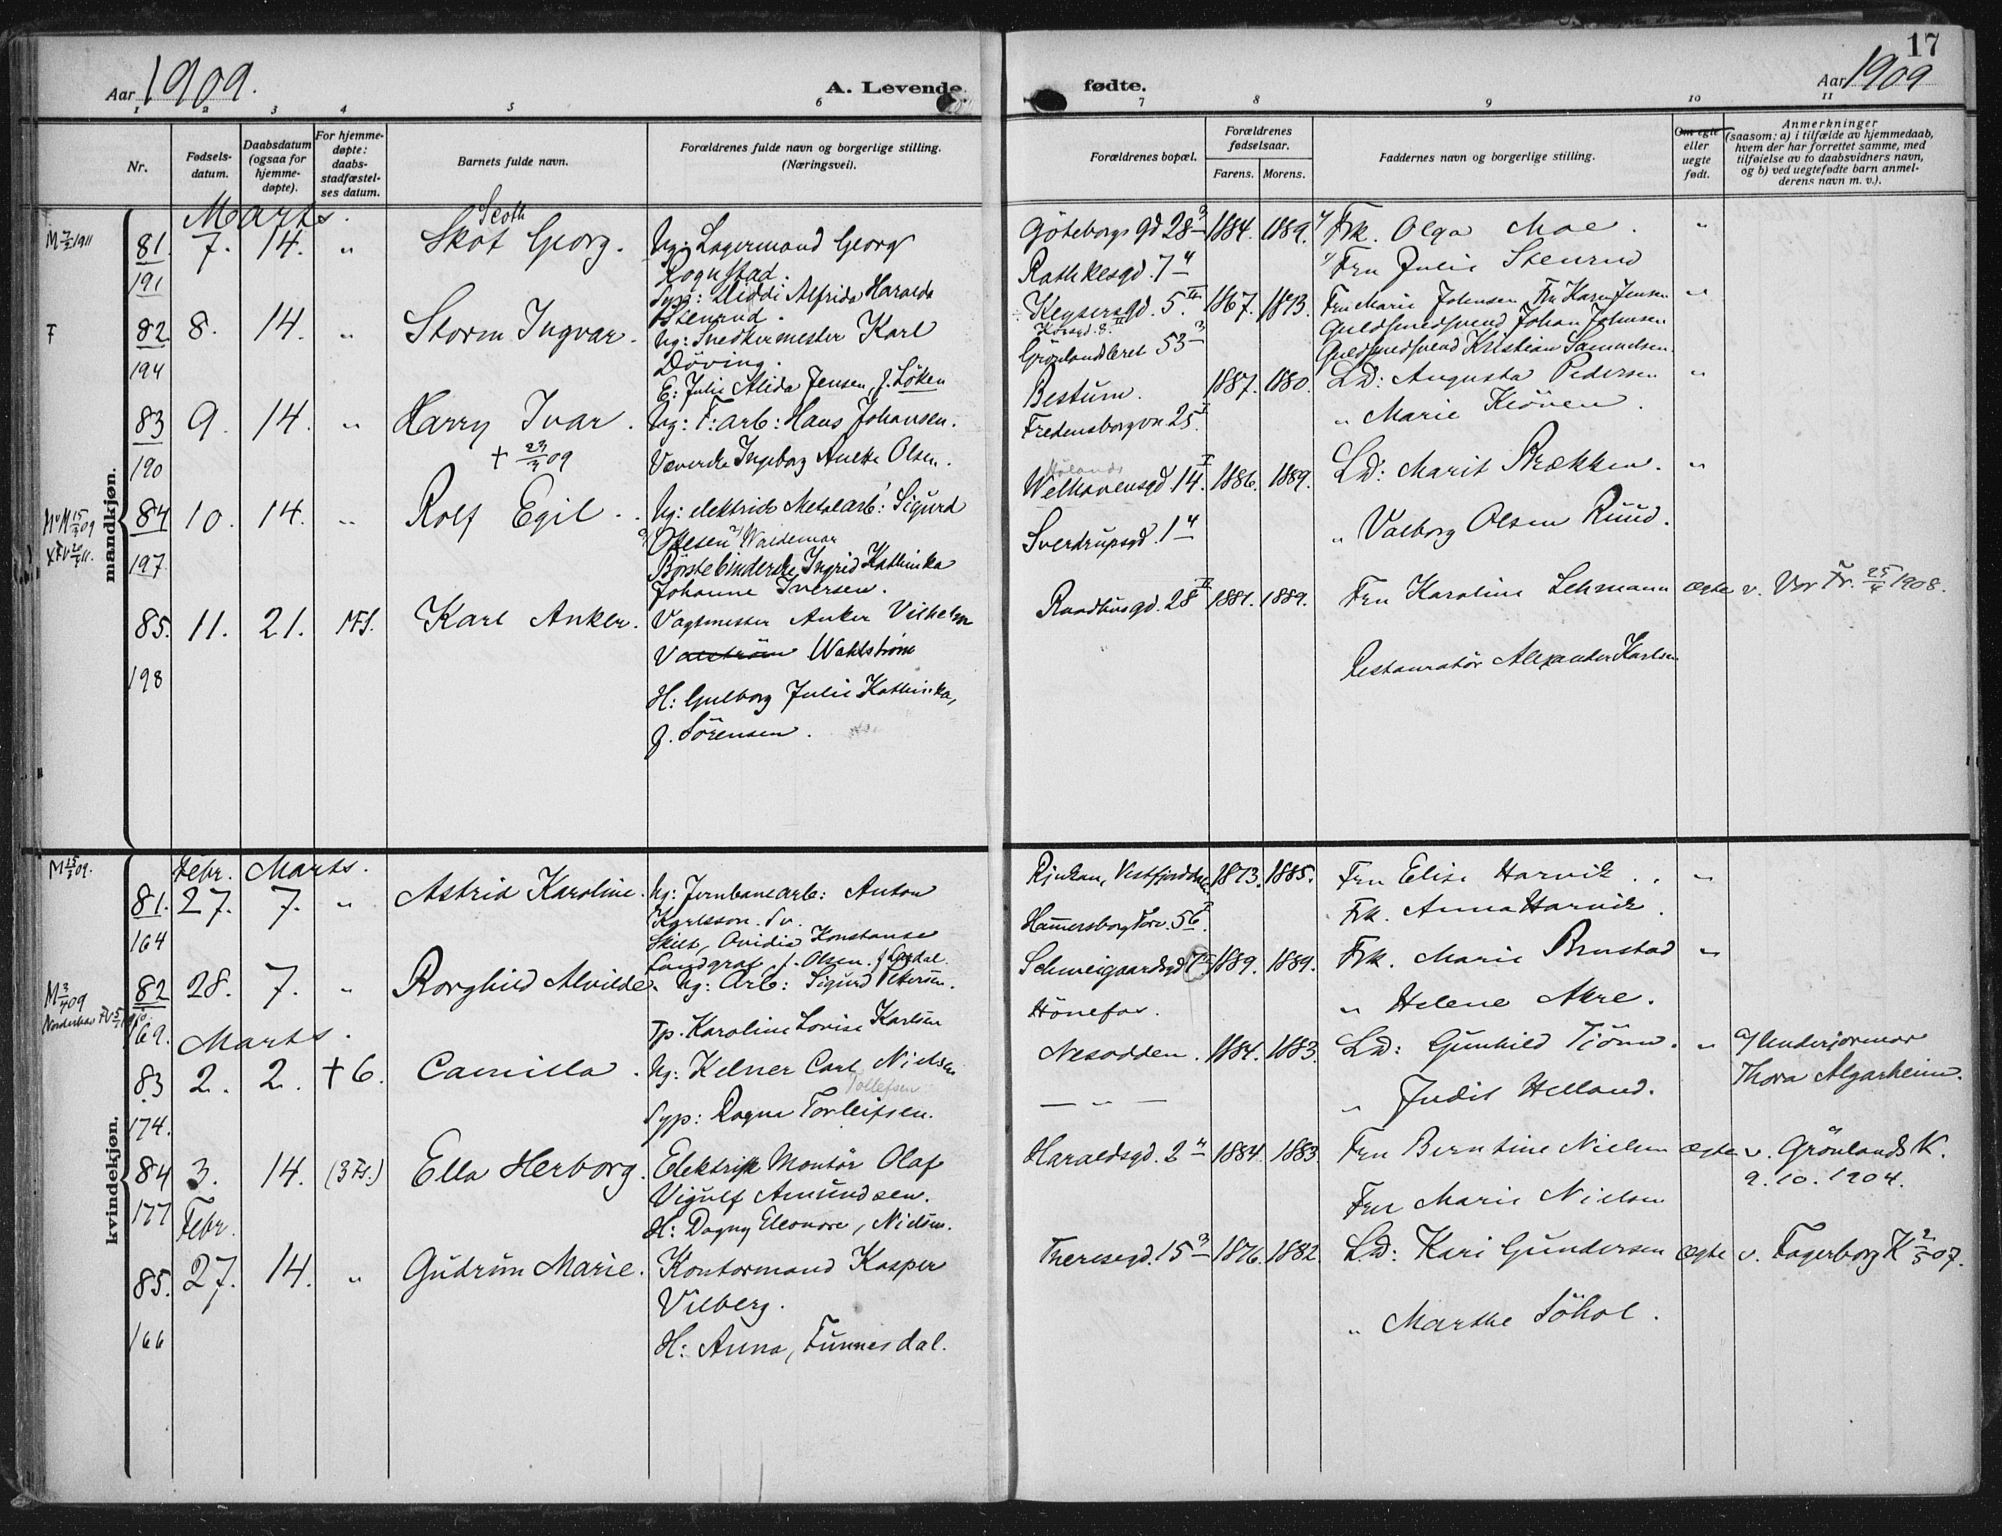 17
Aar 1909.
A. Levende
fødte.
Aar 1909
1 2 3 4 5 6 7 8 9 10 11
Nr.
Fødsels-
datum.
Daabsdatum
(ogsaa for
hjemme-
døpte).
For hjemme-
døpte:
daabs-
stadfæstel-
ses datum.
Barnets fulde navn.
Forældrenes fulde navn og borgerlige stilling.
(Næringsvei).
Forældrenes bopæl.
Forældrenes
fødselsaar.
Farens. Morens.
Faddernes navn og borgerlige stilling.
Om egte
eller
uegte
født.
Anmerkninger
(saasom: a) i tilfælde av hjemmedaab,
hvem der har forrettet samme, med
tilføielse av to daabsvidners navn,
og b) ved uegtefødte barn anmel-
derens navn m. v.).
mandkjøn.
Marts.
81. 7. 14. „ Skot Georg.
Scoth
191
Ug: Lagermand Georg
Rognstad.
Syp: Hiddi Alfrida Haralda
Stenrud.
Göteborgs gd 28 3
Rathkesgd. 7 4
1884. 1889.
Frk. Olga Moe. „
Fru Julie Stenrud
82 8. 14. „ Storm Ingvar.
194
Ug: Snedkermester Karl
Döving.
E: Julie Alida Jensen, f. Löken
Keysersgd. 5.
Korsgd. 8
Grönlandsleret 53 3
1867. 1873.
Fru Marie Johnsen Fru Karen Jensen „
Guldsmedsvend Johan Johnsen
Guldsmedsvend Kristian Samuelsen.
83 9. 14. „ Harry Ivar.
190
+ 23/3 09
Ug: F: arb: Hans Johansen.
Væverske Ingeborg Anette Olsen.
Bestum.
Fredensborgvn 25 I.
1887. 1880.
Ld: Augusta Pedersen „
„ Marie Kiöven.
84 10. 14. „ Rolf Egil.
197
Ug: elektrisk Metalarb: Sigurd
Olsen Waldemar
Børstebinderske Ingrid Kathinka
Johanne Iversen.
Welhavensgd 14 I.
Sverdrupsgd. 1 4
1886. 1889.
Ld: Marit Brækken. „
„ Valborg Olsen Ruud.
85. 11. 21. Karl Anker.
198
Vagtmester Anker Vilhelm
Wahlstrøm
H: Gulborg Julie Kathinka,
f. Sörensen.
Raadhusgd. 28 II
1881. 1889.
Fru Karoline Lehmann ægte v. Vor Fr. 25/4 1908.
Restauratør Alexander Karlsen
kvindekjøn.
M 15/3 09.
Febr. Marts.
81. 27. 7. „ Astrid Karoline.
164
Ug: Jernbanearb: Anton
Karlsson. Sv.
Skilt, Ovidia Konstanse
Landgraf, f. Olsen.
Rjukan, Vestfjorddalen
Hammersborg Torv. 56 I.
1873. 1885.
Fru Elise Harvik. „
Frk. Anna Harvik.
82 28. 7. „ Borghild Alvilde.
169.
Ug: Arb: Sigurd Petersen.
Tp. Karoline Lovise Karlsen
Schweigaardsgd 7
Hönefos.
1889. 1889.
Frk. Marie Brustad „
„ Helene Akre.
Marts.
83 2. 2. + 6. Camilla.
174.
Ug: Kelner Carl Nielsen
Tollefsen
Syp: Ragna Torleifsen.
Nesodden.
— „ —
1884. 1883.
Ld: Gunhild Tjönn. „
„ Judit Helland.
a/ Underjormor
Thora Algarheim.
84 3. 14. (3 Fs.) Ella Herborg.
177
Elektrisk Montör Olaf
Vigulf Amundsen.
H: Dagny Eleonore, Nielsen.
Haraldsgd. 2 4
1884. 1883.
Fru Berntine Nielsen ægte v. Grönlands K.
9. 10. 1904.
Fru Marie Nielsen
Febr.
85. 27. 14. „ Gudrun Marie.
166
Kontormand Kasper
Vilberg.
H: Anna, Tunnesdal.
Theresegd. 15 3
1876. 1882.
Ld: Kari Gundersen ægte v. Fagerborg K 2/5 07.
„ Marthe Söhol.